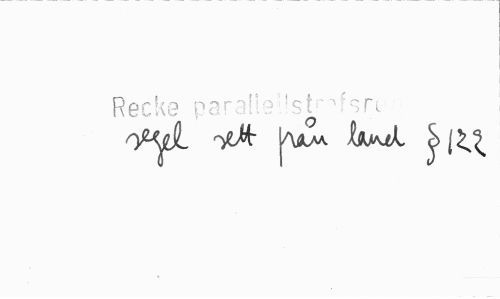 Recke parallellstrofsrom
segel sett från land § 122